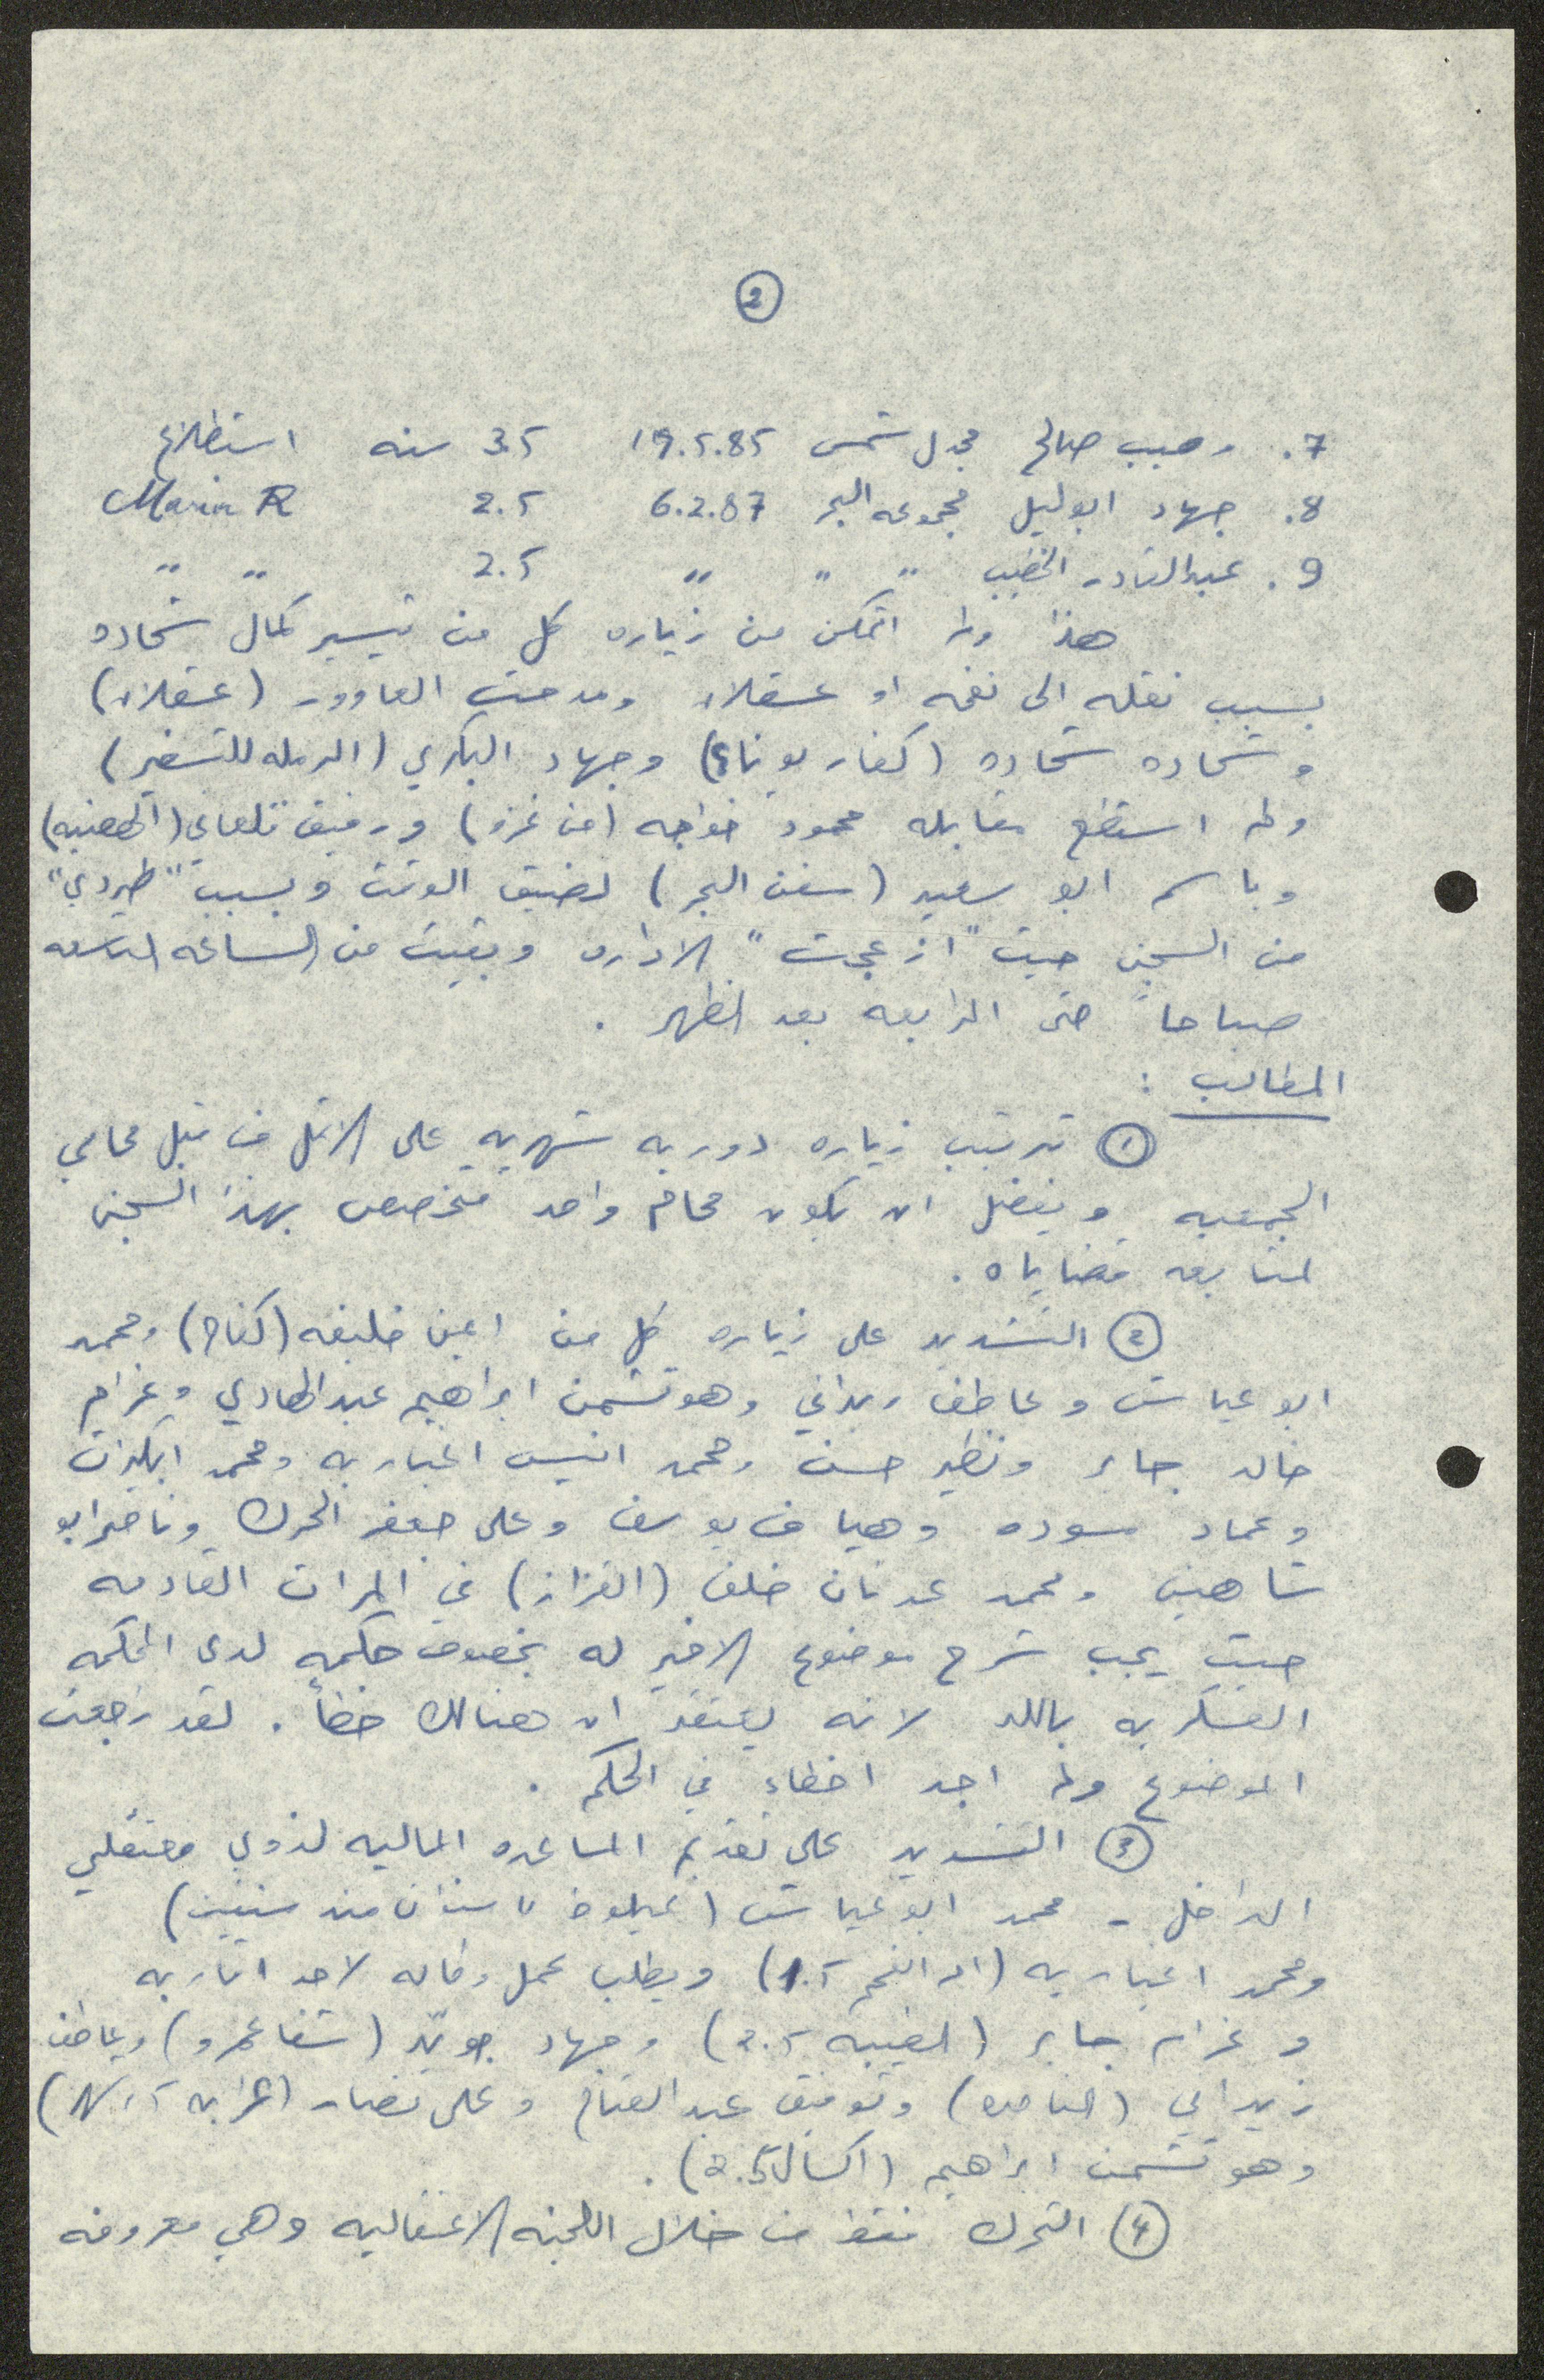 2
7. وهيب صالح مجدل شمس 19.5.85 3.5 سنه استطلاع
8. جهاد ابوليل مجموعه البحر 6.2.87 2.5 Marin R
9. عبدالقادر الخطيب " " " 2.5 " "
هذا ولم اتمكن من زياره كل من تيسير كمال شحاده
بسبب نقله الى نفحه او عسقلان ومدحت العاوور (عسقلان)
وشحاده شحاده (كفار يونا) وجهاد البكري (الرمله للتسفير)
ولم استطع مقابله محمود خواجه (من غزه) ورفيق تلماني (الهضبه)
وباسم ابو سعيد (سفن البحر) لضيق الوقت وبسبب "طردي"
من السجن حيث "ازعجت" الاداره وبقيت من الساعه التاسعه
صباحاً حتى الرابعه بعد الظهر .
المطالب :
1 ترتيب زياره دوريه شهريه على الاقل من قبل محامي
الجمعيه ويفضل ان يكون محام واحد متخصص بهذا السجن
لمتابعه قضاياه .
2 التشديد على زياره كل من ايمن خليفه (كناح) ومحمد
ابو عياش وعاطف زيداني وهوتشمن ابراهيم عبدالهادي وعزام
خالد جابر ونظير حسن ومحمد انيس اغباريه ومحمد
وعماد سوده وهياف يوسف وعلي جعفر الحرك وناصر ابو
شاهين ومحمد عدنان خلف (القزاز) في المرات القادمه
حيث يجب شرح موضوع الاخير له بخصوص حكمه لدى المحكمه
العسكريه باللد لانه يعتقد ان هنالك خطأ . لقد راجعت
الموضوع ولم اجد اخطاء في الحكم .
3 التشديد على تقديم المساعده الماليه لذوي معتقلي
الداخل - محمد ابو عياش (عيلوط منذ سنتين)
ومحمد اغباريه (ام الفحم 1.5) ويطلب عمل وكاله لاحد اقاربه
وعزام جابر (الطيبه 2.5) وجهاد جويّد (شفاعمرو) وعاطف
زيداني (الناصره) وتوفيق عبدالفتاح وعلي نصار (عرابه)
وهوتشمن ابراهيم (اكسال 2.5) .
4 التحرك فقط من خلال اللجنه الاعتقاليه وهي معروفه